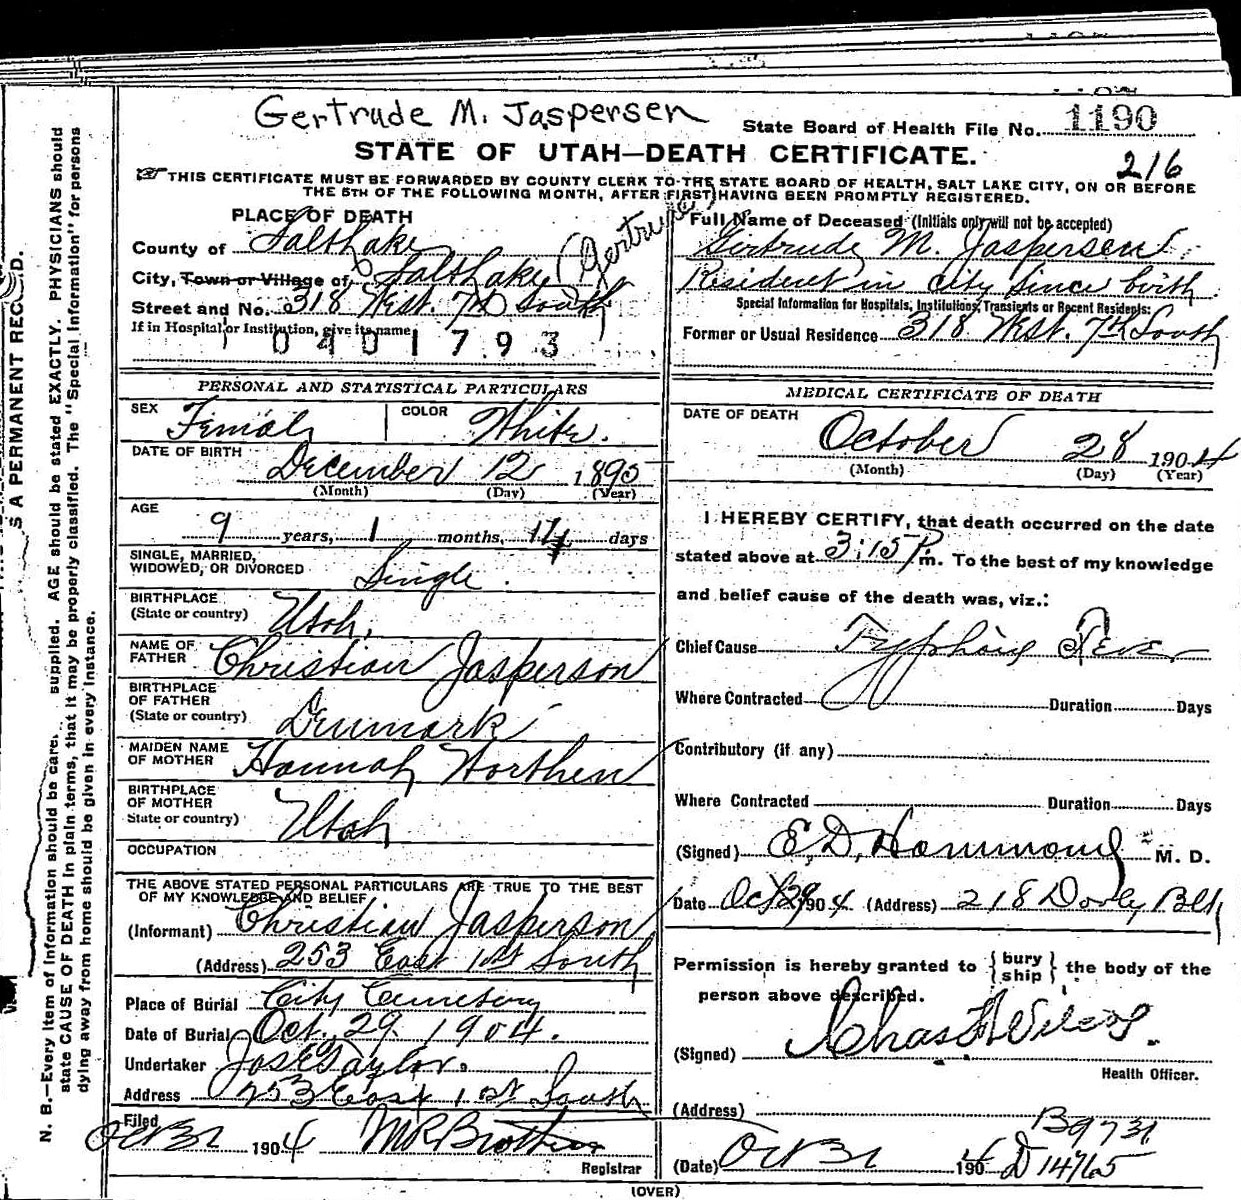 Gertrude M. Jaspersen
State Board of Health File No. 1190
STATE OF UTAH—DEATH CERTIFICATE.
216
☞THIS CERTIFICATE MUST BE FORWARDED BY COUNTY CLERK TO THE STATE BOARD OF HEALTH, SALT LAKE CITY, ON OR BEFORE
THE 5TH OF THE FOLLOWING MONTH, AFTER FIRST HAVING BEEN PROMPTLY REGISTERED.
PLACE OF DEATH
County of Salt Lake
City, Town or Village of Salt Lake (Gertrude)
Street and No. 318 West. 7th South
If in Hospital or Institution, give its name
0401793
Full Name of Deceased (Initials only will not be accepted)
Gertrude M. Jaspersen
Resident in city since birth
Special Information for Hospitals, Institutions, Transients or Recent Residents:
Former or Usual Residence 318 West. 7th South
PERSONAL AND STATISTICAL PARTICULARS
SEX Female COLOR White.
DATE OF BIRTH December 12 1895
(Month) (Day) (Year)
AGE
9 years, 1 months, 14 days
SINGLE, MARRIED,
WIDOWED, OR DIVORCED Single.
BIRTHPLACE
(State or country) Utah.
NAME OF
FATHER Christian Jasperson
BIRTHPLACE
OF FATHER
(State or country) Denmark
MAIDEN NAME
OF MOTHER Hannah Worthen
BIRTHPLACE
OF MOTHER
State or country) Utah
OCCUPATION
THE ABOVE STATED PERSONAL PARTICULARS ARE TRUE TO THE BEST
OF MY KNOWLEDGE AND BELIEF
(Informant) Christian Jasperson
(Address) 253 East 1st South
Place of Burial City Cemetery
Date of Burial Oct. 29. 1904.
Undertaker Jos E Taylor.
Address 253 East 1st South
Filed
Oct 31 1904 M R Brothers
Registrar
MEDICAL CERTIFICATE OF DEATH
DATE OF DEATH October 28 1904
(Month) (Day) (Year)
I HEREBY CERTIFY, that death occurred on the date
stated above at 3:15 P. m. To the best of my knowledge
and belief cause of the death was, viz.:
Chief Cause Typhoid Fever
Where Contracted Duration Days
Contributory (if any)
Where Contracted Duration Days
(Signed) E. D. Hammond M. D.
Date Oct 29 1904 (Address) 218 Dooly Blk
Permission is hereby granted to { bury ship } the body of the
person above described.
(Signed) Chas
Health Officer.
(Address)
B 9731
(Date) Oct 31 1904 D 14765
(OVER)
N. B.—Every item of information should be supplied. AGE should be stated EXACTLY. PHYSICIANS should
state CAUSE OF DEATH in plain terms, that it may be properly classified. The "Special Information" for persons
dying away from home should be given in every instance.
S A PERMANENT RECORD.